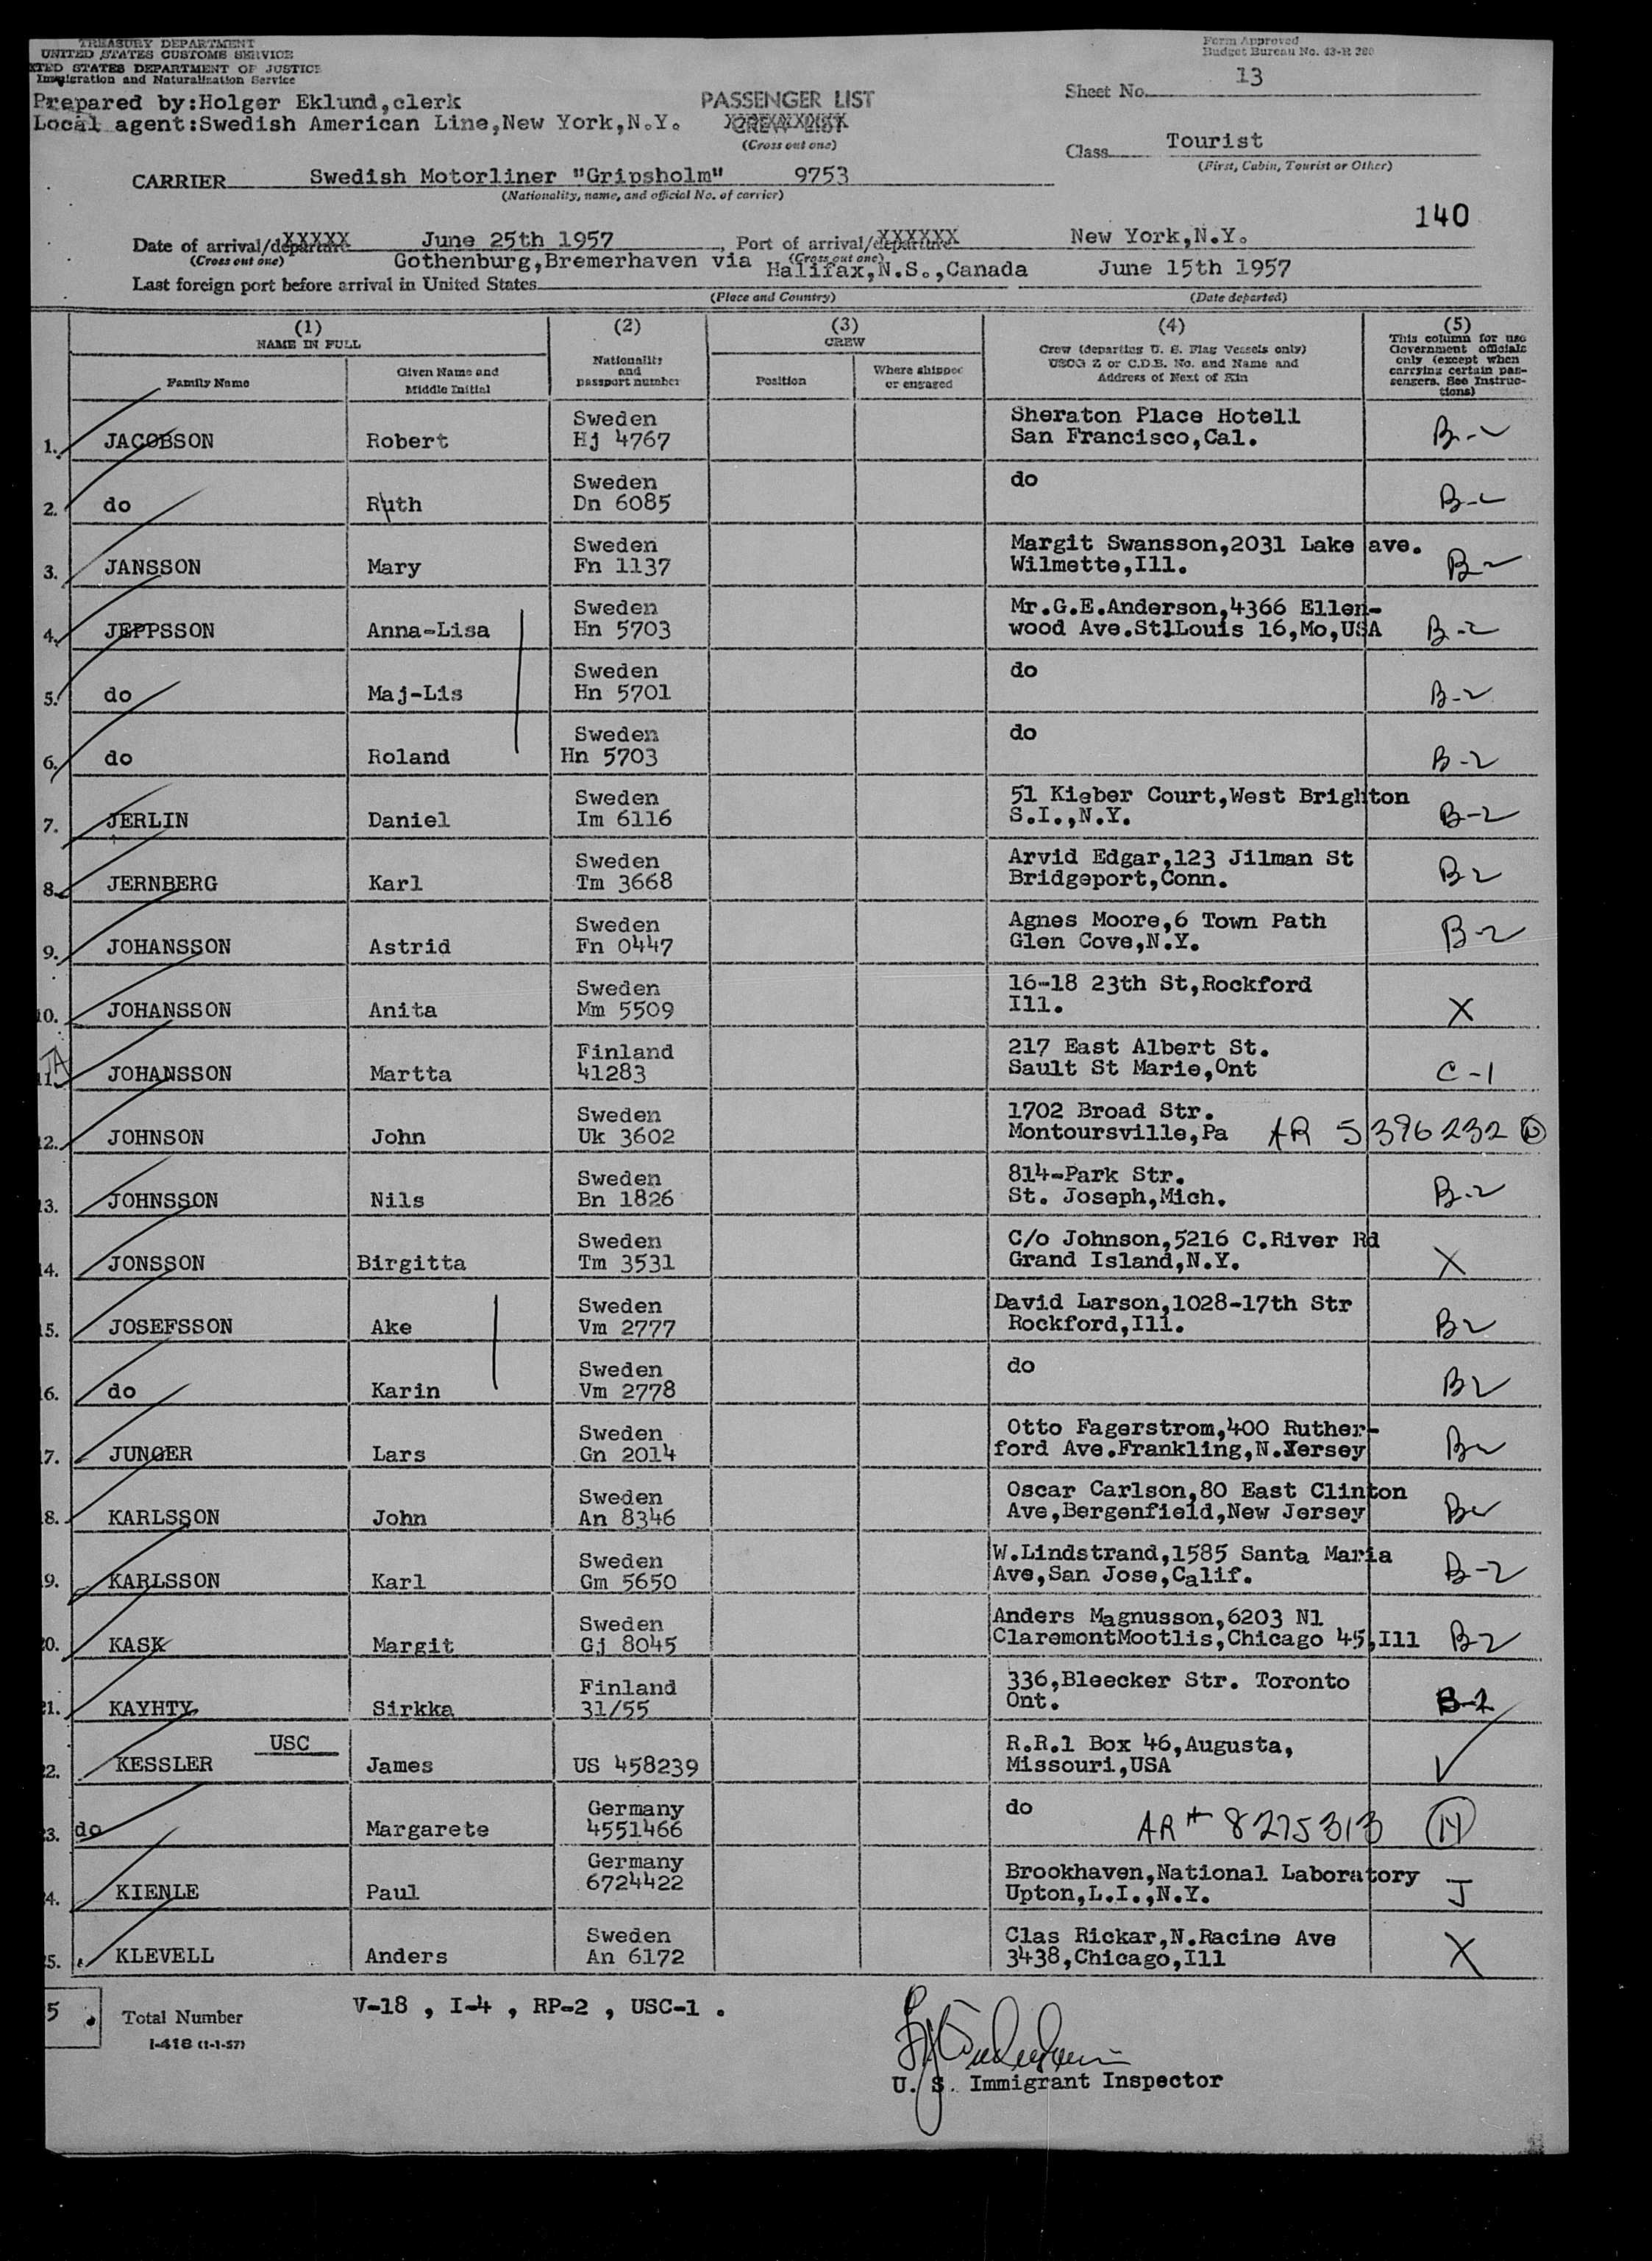 TREASURY DEPARTMENT
UNITED STATES CUSTOMS SERVICE
TED STATES DEPARTMENT OF JUSTICE
Immigration and Naturalization Service
Form Approved
Budget Bureau No. 43-R 
Prepared by:Holger Eklund,clerk
Local agent:Swedish American Line,New York,N.Y.
PASSENGER LIST
CREW LIST
(Cross out one)
Sheet No. 13
Class Tourist
(First, Cabin, Tourist or Other)
CARRIER Swedish Motorliner "Gripsholm" 9753
(Nationality, name, and official No. of carrier)
140
Date of arrival/departure June 25th 1957, Port of arrival/departure New York,N.Y.
(Cross out one) (Cross out one)
Gothenburg,Bremerhaven via Halifax,N.S.,Canada June 15th 1957
Last foreign port before arrival in United States
(Place and Country) (Date departed)
(1) NAME IN FULL
Family Name
Given Name and Middle Initial
(2) Nationality and passport number
(3) CREW
Position
Where shipped or engaged
(4) Crew (departing U. S. Flag Vessels only) USCG Z or C.D.B. No. and Name and Address of Next of Kin
(5) This column for use Government officials only (except when carrying certain passengers. See Instructions)
Sweden Sheraton Place Hotell
1. JACOBSON Robert Hj 4767 San Francisco,Cal. B-2
Sweden do
2. do Ruth Dn 6085 B-2
Sweden Margit Swansson,2031 Lake ave.
3. JANSSON Mary Fn 1137 Wilmette,Ill. B-2
Sweden Mr.G.E.Anderson,4366 Ellen-
4. JEPPSSON Anna-Lisa Hn 5703 wood Ave.St.Louis 16,Mo,USA B-2
Sweden do
5. do Maj-Lis Hn 5701 B-2
Sweden do
6. do Roland Hn 5703 B-2
Sweden 51 Kieber Court,West Brighton
7. JERLIN Daniel Im 6116 S.I.,N.Y. B-2
Sweden Arvid Edgar,123 Jilman St
8. JERNBERG Karl Tm 3668 Bridgeport,Conn. B2
Sweden Agnes Moore,6 Town Path
9. JOHANSSON Astrid Fn 0447 Glen Cove,N.Y. B-2
Sweden 16-18 23th St,Rockford
10. JOHANSSON Anita Mm 5509 Ill. X
Finland 217 East Albert St.
11. JOHANSSON Martta 41283 Sault St Marie,Ont C-1
Sweden 1702 Broad Str.
12. JOHNSON John Uk 3602 Montoursville,Pa AR 5396232
Sweden 814-Park Str.
13. JOHNSSON Nils Bn 1826 St. Joseph,Mich. B-2
Sweden C/o Johnson,5216 C.River Rd
14. JONSSON Birgitta Tm 3531 Grand Island,N.Y. X
Sweden David Larson,1028-17th Str
15. JOSEFSSON Ake Vm 2777 Rockford,Ill. B2
Sweden do
16. do Karin Vm 2778 B2
Sweden Otto Fagerstrom,400 Ruther-
17. JUNGER Lars Gn 2014 ford Ave.Frankling,N.Jersey B2
Sweden Oscar Carlson,80 East Clinton
18. KARLSSON John An 8346 Ave,Bergenfield,New Jersey B2
Sweden W.Lindstrand,1585 Santa Maria
19. KARLSSON Karl Gm 5650 Ave,San Jose,Calif. B-2
Sweden Anders Magnusson,6203 Nl
20. KASK Margit Gj 8045 ClaremontMootlis,Chicago 45,Ill B2
Finland 336,Bleecker Str. Toronto
21. KAYHTY Sirkka 31/55 Ont.
USC R.R.1 Box 46,Augusta,
22. KESSLER James US 458239 Missouri,USA
Germany do
23. do Margarete 4551466 AR# 8275313
Germany Brookhaven,National Laboratory
24. KIENLE Paul 6724422 Upton,L.I.,N.Y. J
Sweden Clas Rickar,N.Racine Ave
25. KLEVELL Anders An 6172 3438,Chicago,Ill X
5 Total Number V-18 , I-4 , RP-2 , USC-1 .
I-418 (1-1-57)
U. S. Immigrant Inspector